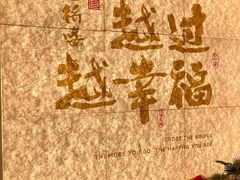 越过
越幸福
CROSS THE BRIDGE
THE MORE YOU GO THE HAPPIER YOU ARE